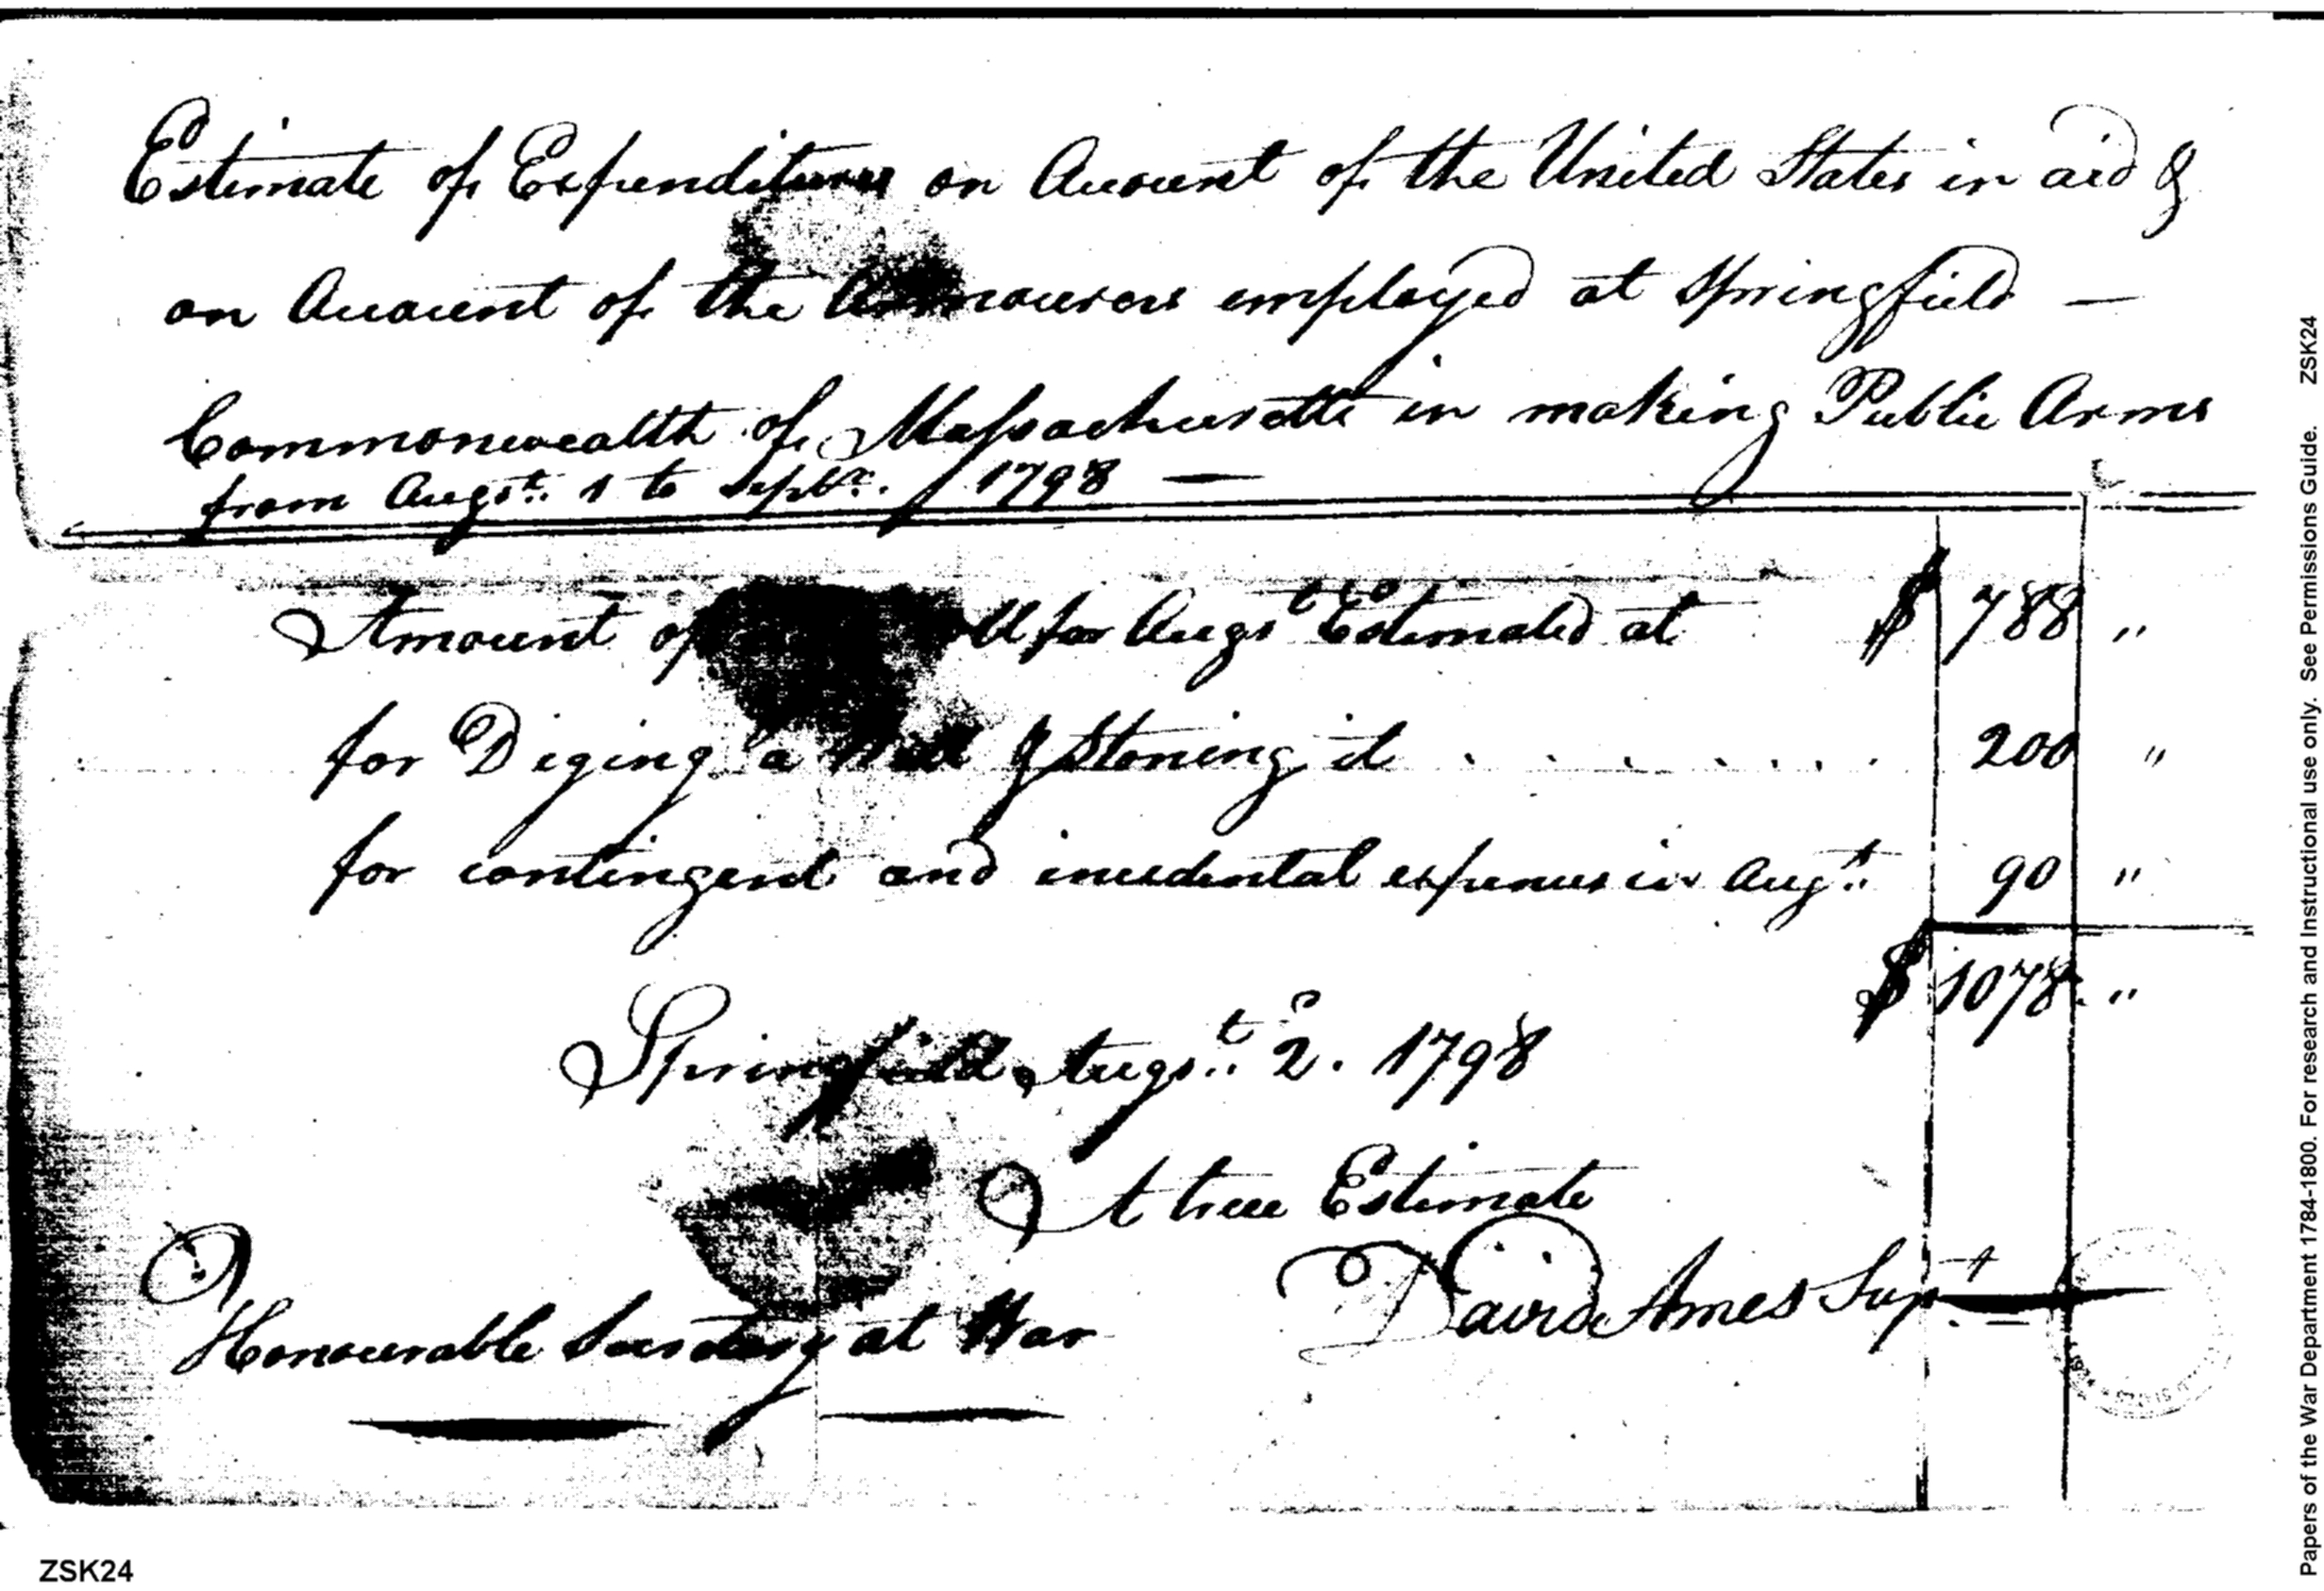 Estimate of Expenditures on Account of the United States in aid &
on Account of the Armourers employed at Springfield —
Commonwealth of Massachusetts in making Public Arms
from Augst. 1 to Septbr. 1 1798 —
Amount of ll for Augst Estimated at $ 788 "
for Diging a Well & Stoning it . . . . . . . 200 "
for contingent and incidental expenses in Augt. 90 "
$ 1078 "
Springfield, Augst. 2. 1798
A true Estimate
David Ames Supt
Honourable Secretary at War
ZSK24
Papers of the War Department 1784-1800. For research and Instructional use only. See Permissions Guide. ZSK24